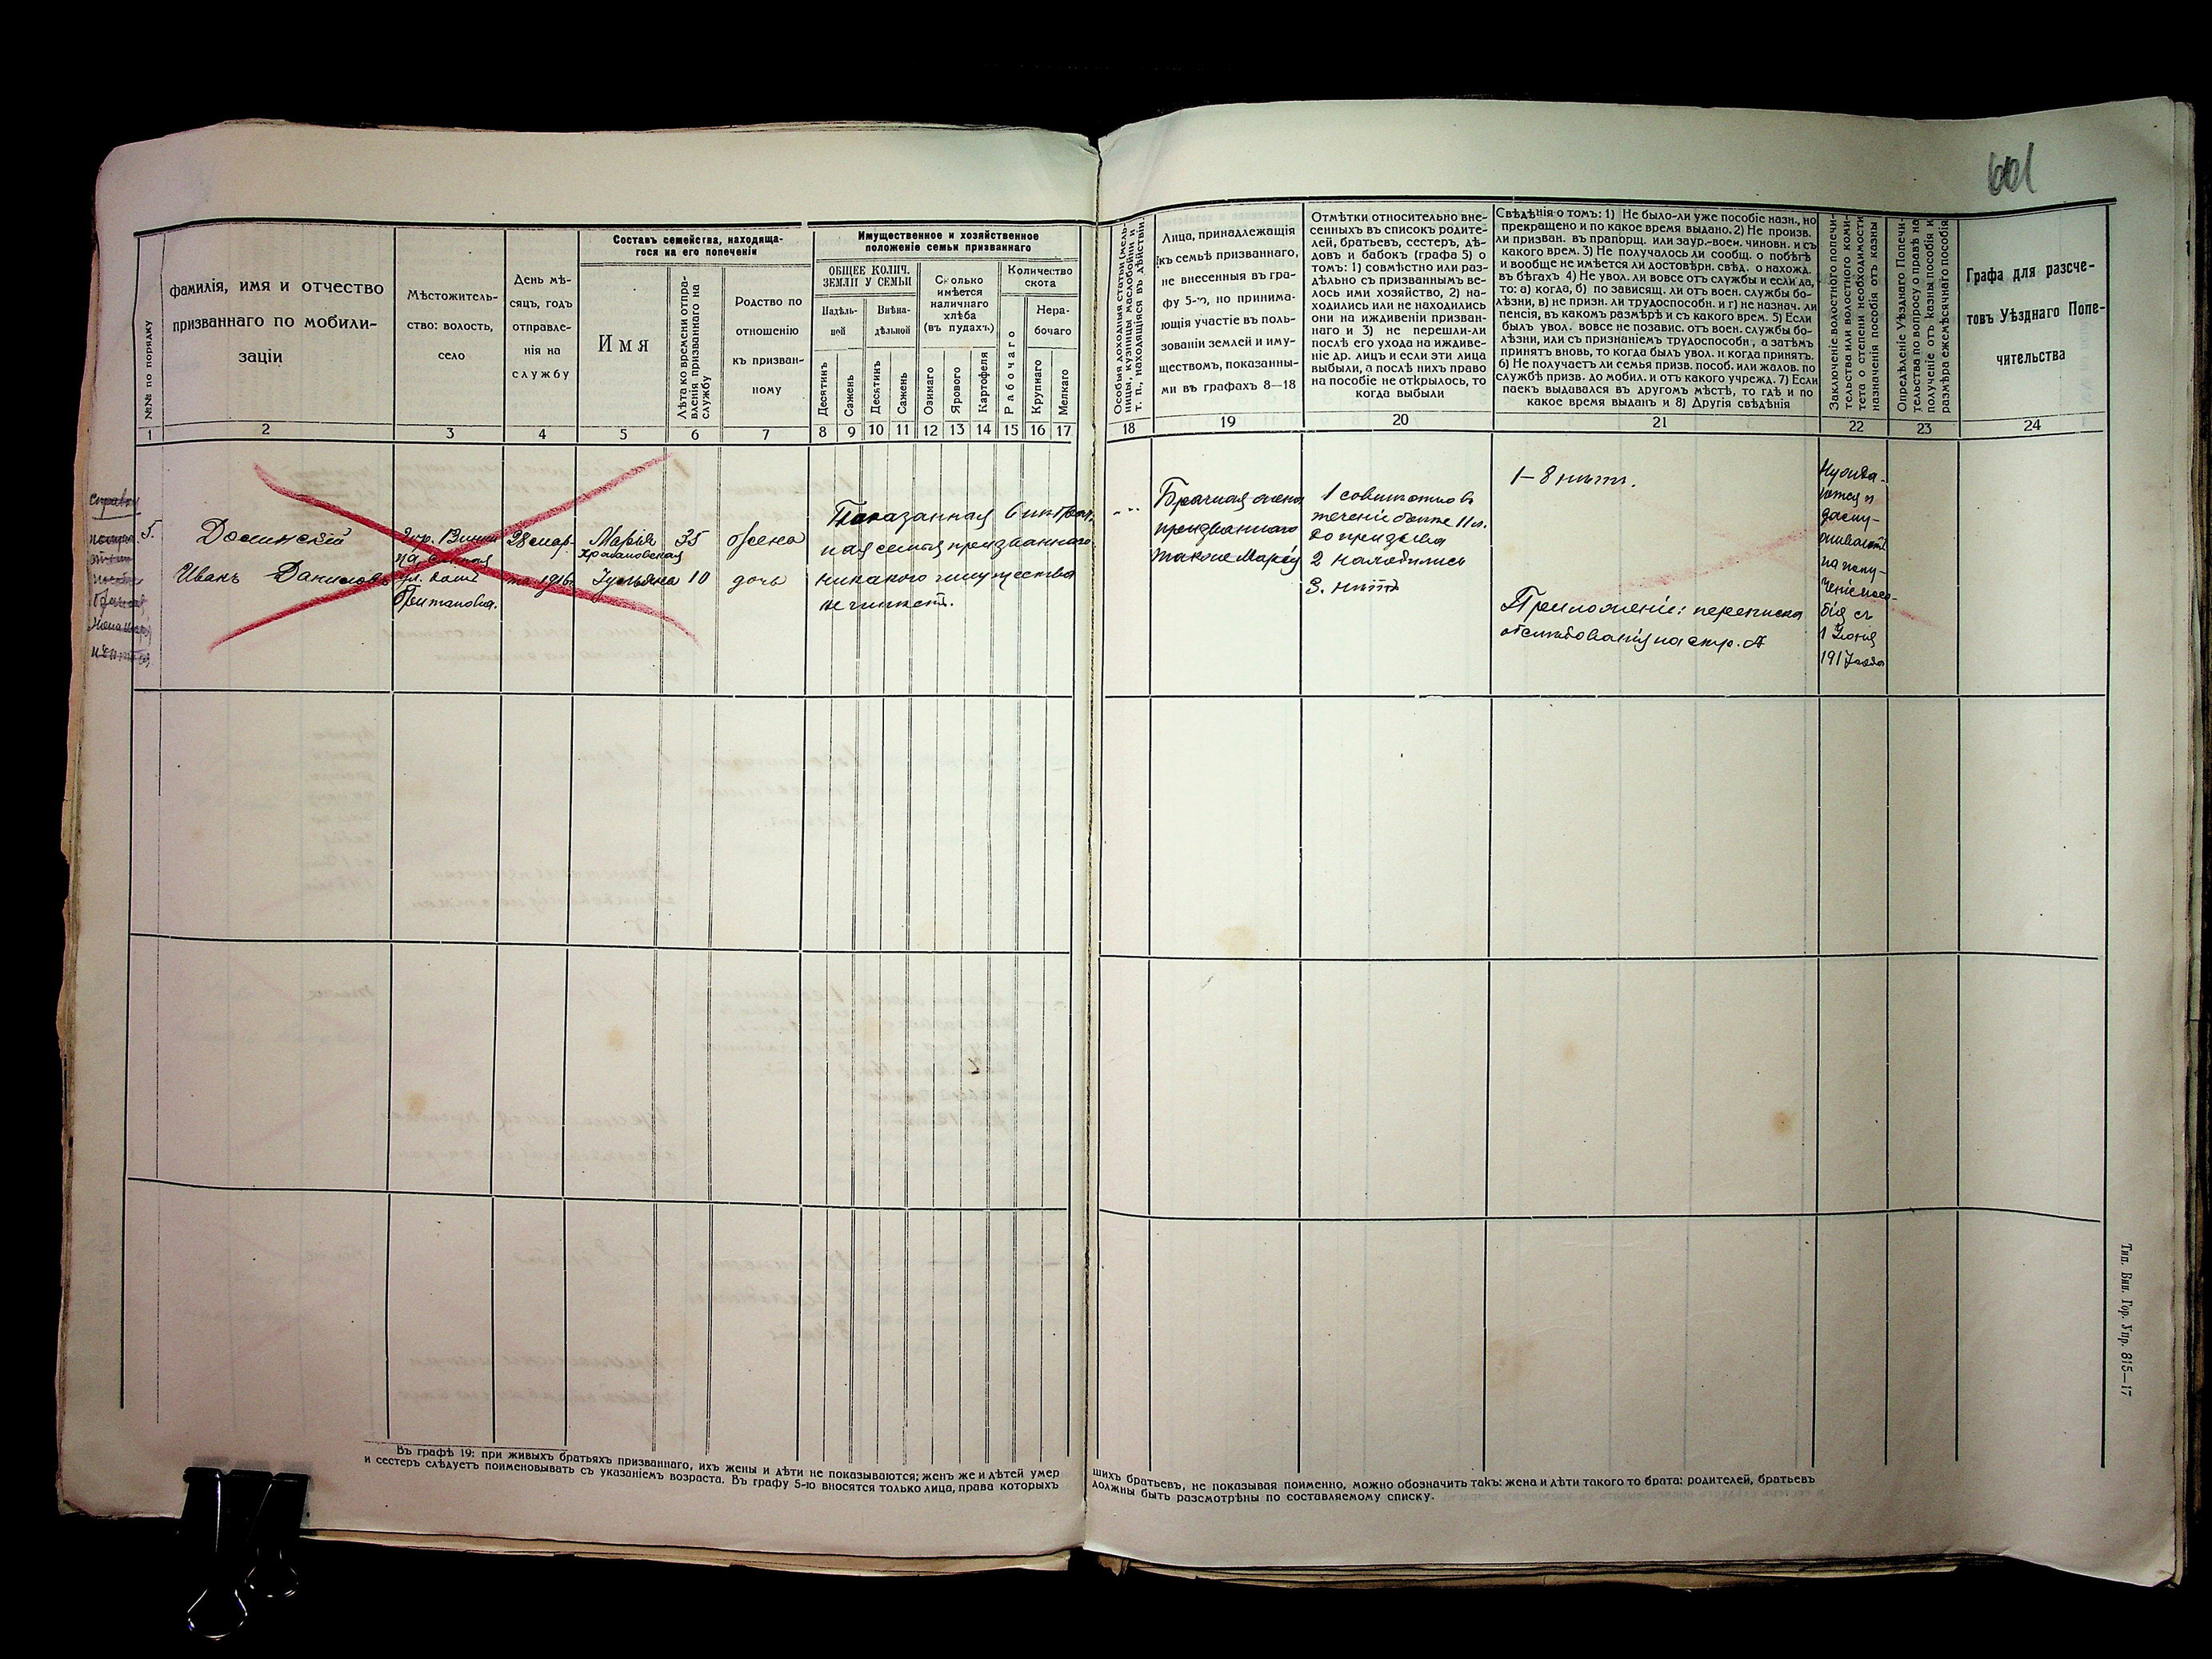 601
№№ по порядку
фамилія, имя и отчество
призваннаго по мобили-
заціи
Мѣстожитель-
ство: волость,
село
День мѣ-
сяцъ, годъ
отправле-
нія на
службу
Составъ семейства, находяща-
гося на его попеченіи
Имя
Лѣта ко времени отпра-
вленія призваннаго на
службу
Родство по
отношенію
къ призван-
ному
Имущественное и хозяйственное
положеніе семьи призваннаго
ОБЩЕЕ КОЛИЧ.
ЗЕМЛИ У СЕМЬИ
Надѣль-
ной
Внѣна-
дѣльной
Десятинъ
Сажень
Десятинъ
Сажень
Сколько
имѣется
наличнаго
хлѣба
(въ пудахъ)
Озимаго
Ярового
Картофеля
Количество
скота
Рабочаго
Нера-
бочаго
Крупнаго
Мелкаго
1 2 3 4 5 6 7 8 9 10 11 12 13 14 15 16 17
Особыя доходныя статьи (мель-
ницы, кузницы, маслобойни и
т. п., находящіяся въ дѣйствіи)
Лица, принадлежащія
къ семьѣ призваннаго,
не внесенныя въ гра-
фу 5-ю, но принима-
ющія участіе въ поль-
зованіи землей и иму-
ществомъ, показанны-
ми въ графахъ 8—18
Отмѣтки относительно вне-
сенныхъ въ списокъ родите-
лей, братьевъ, сестеръ, дѣ-
довъ и бабокъ (графа 5) о
томъ: 1) совмѣстно или раз-
дѣльно съ призваннымъ ве-
лось ими хозяйство, 2) на-
ходились или не находились
они на иждивеніи призван-
наго и 3) не перешли-ли
послѣ его ухода на иждиве-
ніе др. лицъ и если эти лица
выбыли, а послѣ нихъ право
на пособіе не открылось, то
когда выбыли
Свѣдѣнія о томъ: 1) Не было-ли уже пособіе назн., но
прекращено и по какое время выдано. 2) Не произв.
ли призван. въ прапорщ. или заур.-воен. чиновн. и съ
какого врем. 3) Не получалось ли сообщ. о побѣгѣ
и вообще не имѣется ли достовѣрн. свѣд. о нахожд.
въ бѣгахъ 4) Не увол. ли вовсе отъ службы и если да,
то: а) когда, б) по зависящ. ли отъ воен. службы бо-
лѣзни, в) не призн. ли трудоспособн. и г) не назнач. ли
пенсія, въ какомъ размѣрѣ и съ какого врем. 5) Если
былъ увол. вовсе не позавис. отъ воен. службы бо-
лѣзни, или съ признаніемъ трудоспособн, а затѣмъ
принятъ вновь, то когда былъ увол. и когда принятъ.
6) Не получаетъ ли семья призв. пособ. или жалов. по
службѣ призв. до мобил. и отъ какого учрежд. 7) Если
паекъ выдавался въ другомъ мѣстѣ, то гдѣ и по
какое время выданъ и 8) Другія свѣдѣнія
Заключеніе волостного попечи-
тельства или волостного коми-
тета о степени необходимости
назначенія пособія отъ казны
Опредѣленіе Уѣзднаго Попечи-
тельства по вопросу о правѣ на
полученіе отъ казны пособія и
размѣра ежемѣсячнаго пособія
Графа для разсче-
товъ Уѣзднаго Попе-
чительства
18 19 20 21 22 23 24
5.
Иванъ Даниловъ
28 мар-
та 1916 г.
Марья 35 жена
Храпановская
10 дочь
Показанная
ная семья призваннаго
никакого имущества
не имѣетъ.
Брачная жена
призваннаго
1 совмѣстно въ
теченіе болѣе 11 л.
до призыва
2 находились
3. нѣтъ
1—8 нѣтъ.
Приложеніе: переписка
обслѣдованія на стр. А
Нужда-
ются и
заслу-
живаютъ
на полу-
ченіе посо-
бія съ
1 Іюня
1917 года
Въ графѣ 19: при живыхъ братьяхъ призваннаго, ихъ жены и дѣти не показываются; женъ же и дѣтей умер
и сестеръ слѣдуетъ поименовывать съ указаніемъ возраста. Въ графу 5-ю вносятся только лица, права которыхъ
шихъ братьевъ, не показывая поименно, можно обозначить такъ: жена и дѣти такого то брата; родителей, братьевъ
должны быть разсмотрѣны по составляемому списку.
Тип. Вин. Гор. Упр. 815—17